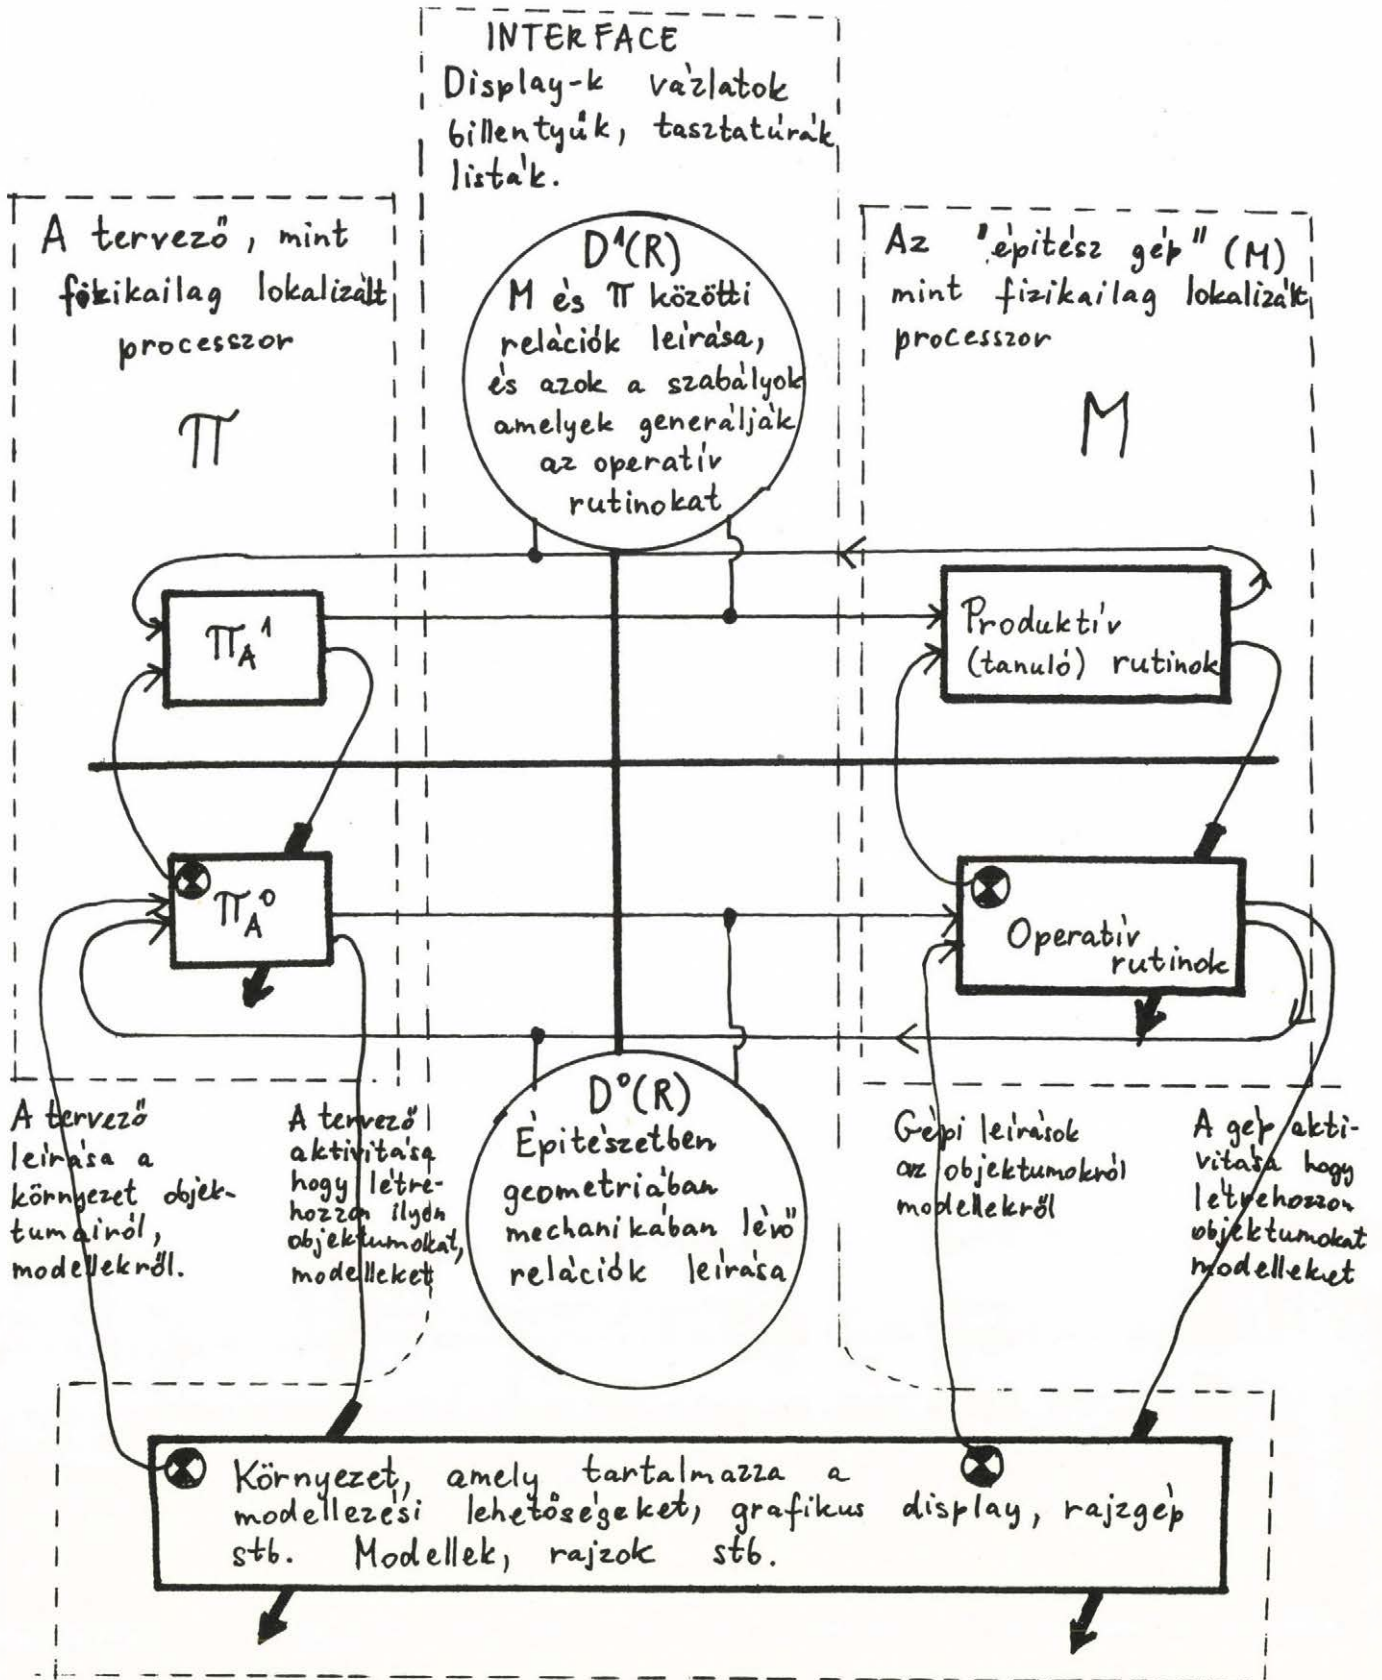 INTERFACE
Display-k vázlatok
billentyűk, tasztatúrák
listák.
A tervező, mint
fizikailag lokalizált
processzor
π
D¹(R)
M és π közötti
relációk leírása,
és azok a szabályok
amelyek generálják
az operatív
rutinokat
Az "építész gép" (M)
mint fizikailag lokalizált
processzor
M
π_A¹
Produktív
(tanuló) rutinok
π_A⁰
Operatív
rutinok
D⁰(R)
Építészetben
geometriában
mechanikában lévő
relációk leírása
A tervező
leírása a
környezet objek-
tumairól,
modellekről.
A tervező
aktivitása
hogy létre-
hozzon ilyen
objektumokat,
modelleket
Gépi leírások
az objektumokról
modellekről
A gép akti-
vitása hogy
létrehozzon
objektumokat
modelleket
Környezet, amely tartalmazza a
modellezési lehetőségeket, grafikus display, rajzgép
stb. Modellek, rajzok stb.